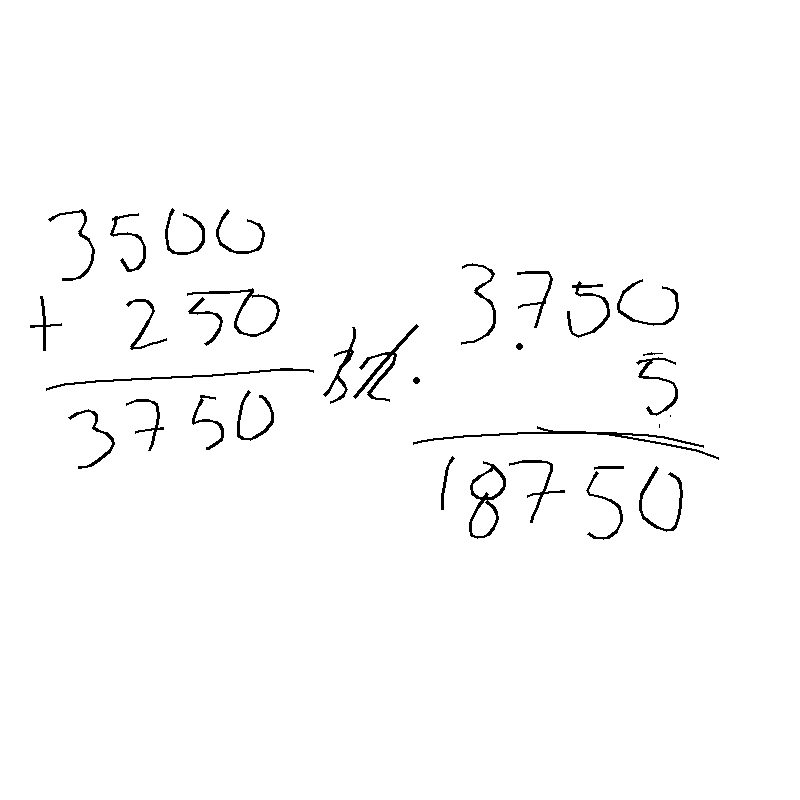 3500
+ 250
3750
3.750
5
18750